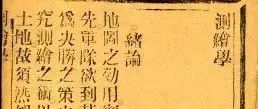 測繪學
緒論
地圖之効用
先軍隊欲到
爲决勝之策
究測繪之術
土地故須熟